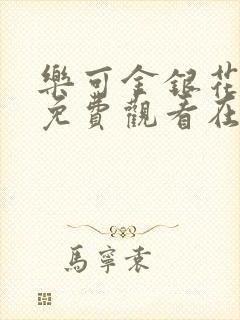 樂可金銀花
免費觀看在
馬寧袁